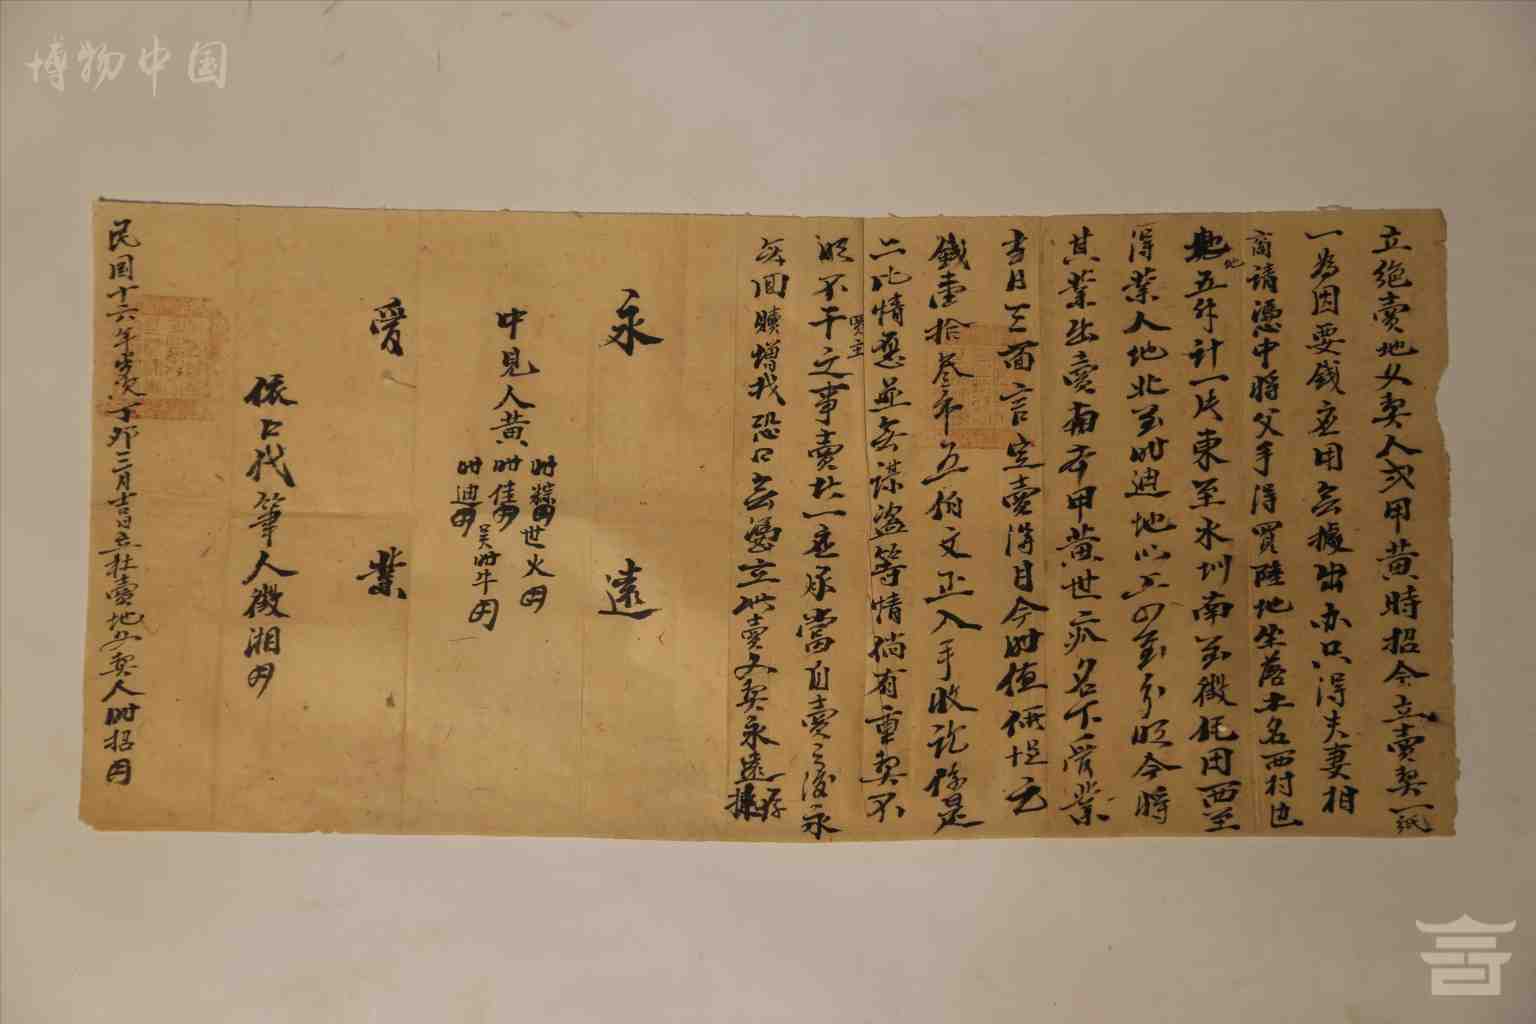 博物中国
立絶賣地文契人式甲黄時招今立賣契一紙
一為因要錢应用無據出办只得夫妻相
商請憑中將父手得買陸地坐落土名西村
地五 計一片東至水圳南至徵 田西至
得業人地北至时迪地以上四至分明今將
其業出賣 本甲黄世 名下管業
当日三面言定賣得目今时值価
錢壹拾叁 五伯文正入手收訖係是
二比情愿並無謀盗等情倘有重契不
明不干買主之事賣 一应承當自賣之後永
無回贖增找恐口無憑立此賣文契永遠存據
永遠
中見人黄 时 世火 时佳 时迪 吴时牛
爱業
依口代筆人徵湘
民国十六年歲次丁卯二月吉日立杜賣地文契人时招